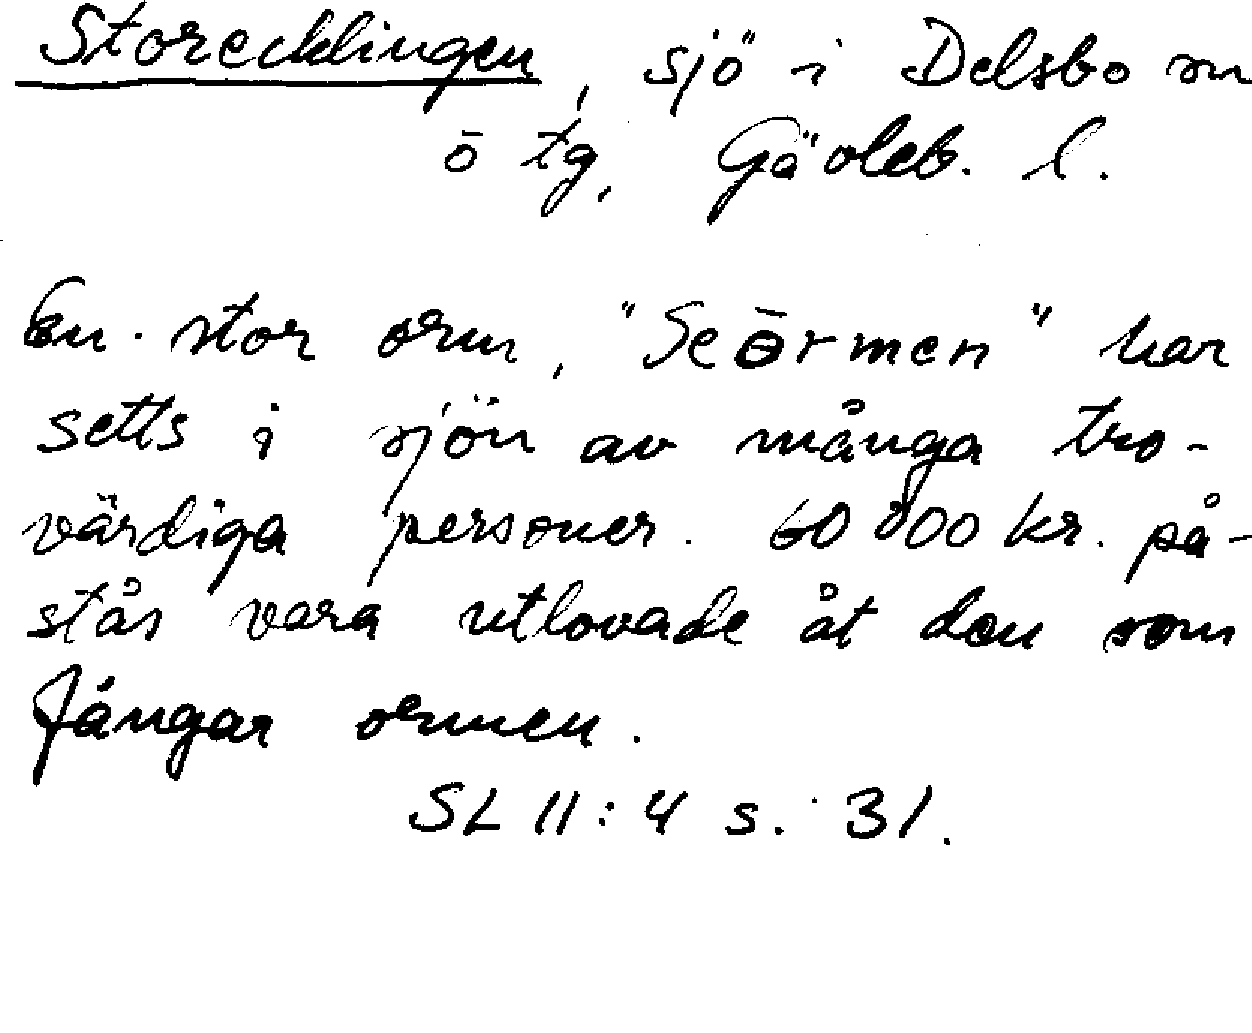 Storecklingen, sjö i Delsbo sn
ö tg, Gävleb. l.
En stor orm, "Seörmen" har
setts i sjön av många tro-
värdiga personer. 60 000 kr. på-
stås vara utlovade åt den som
fångar ormen.
SL 11:4 s. 31.